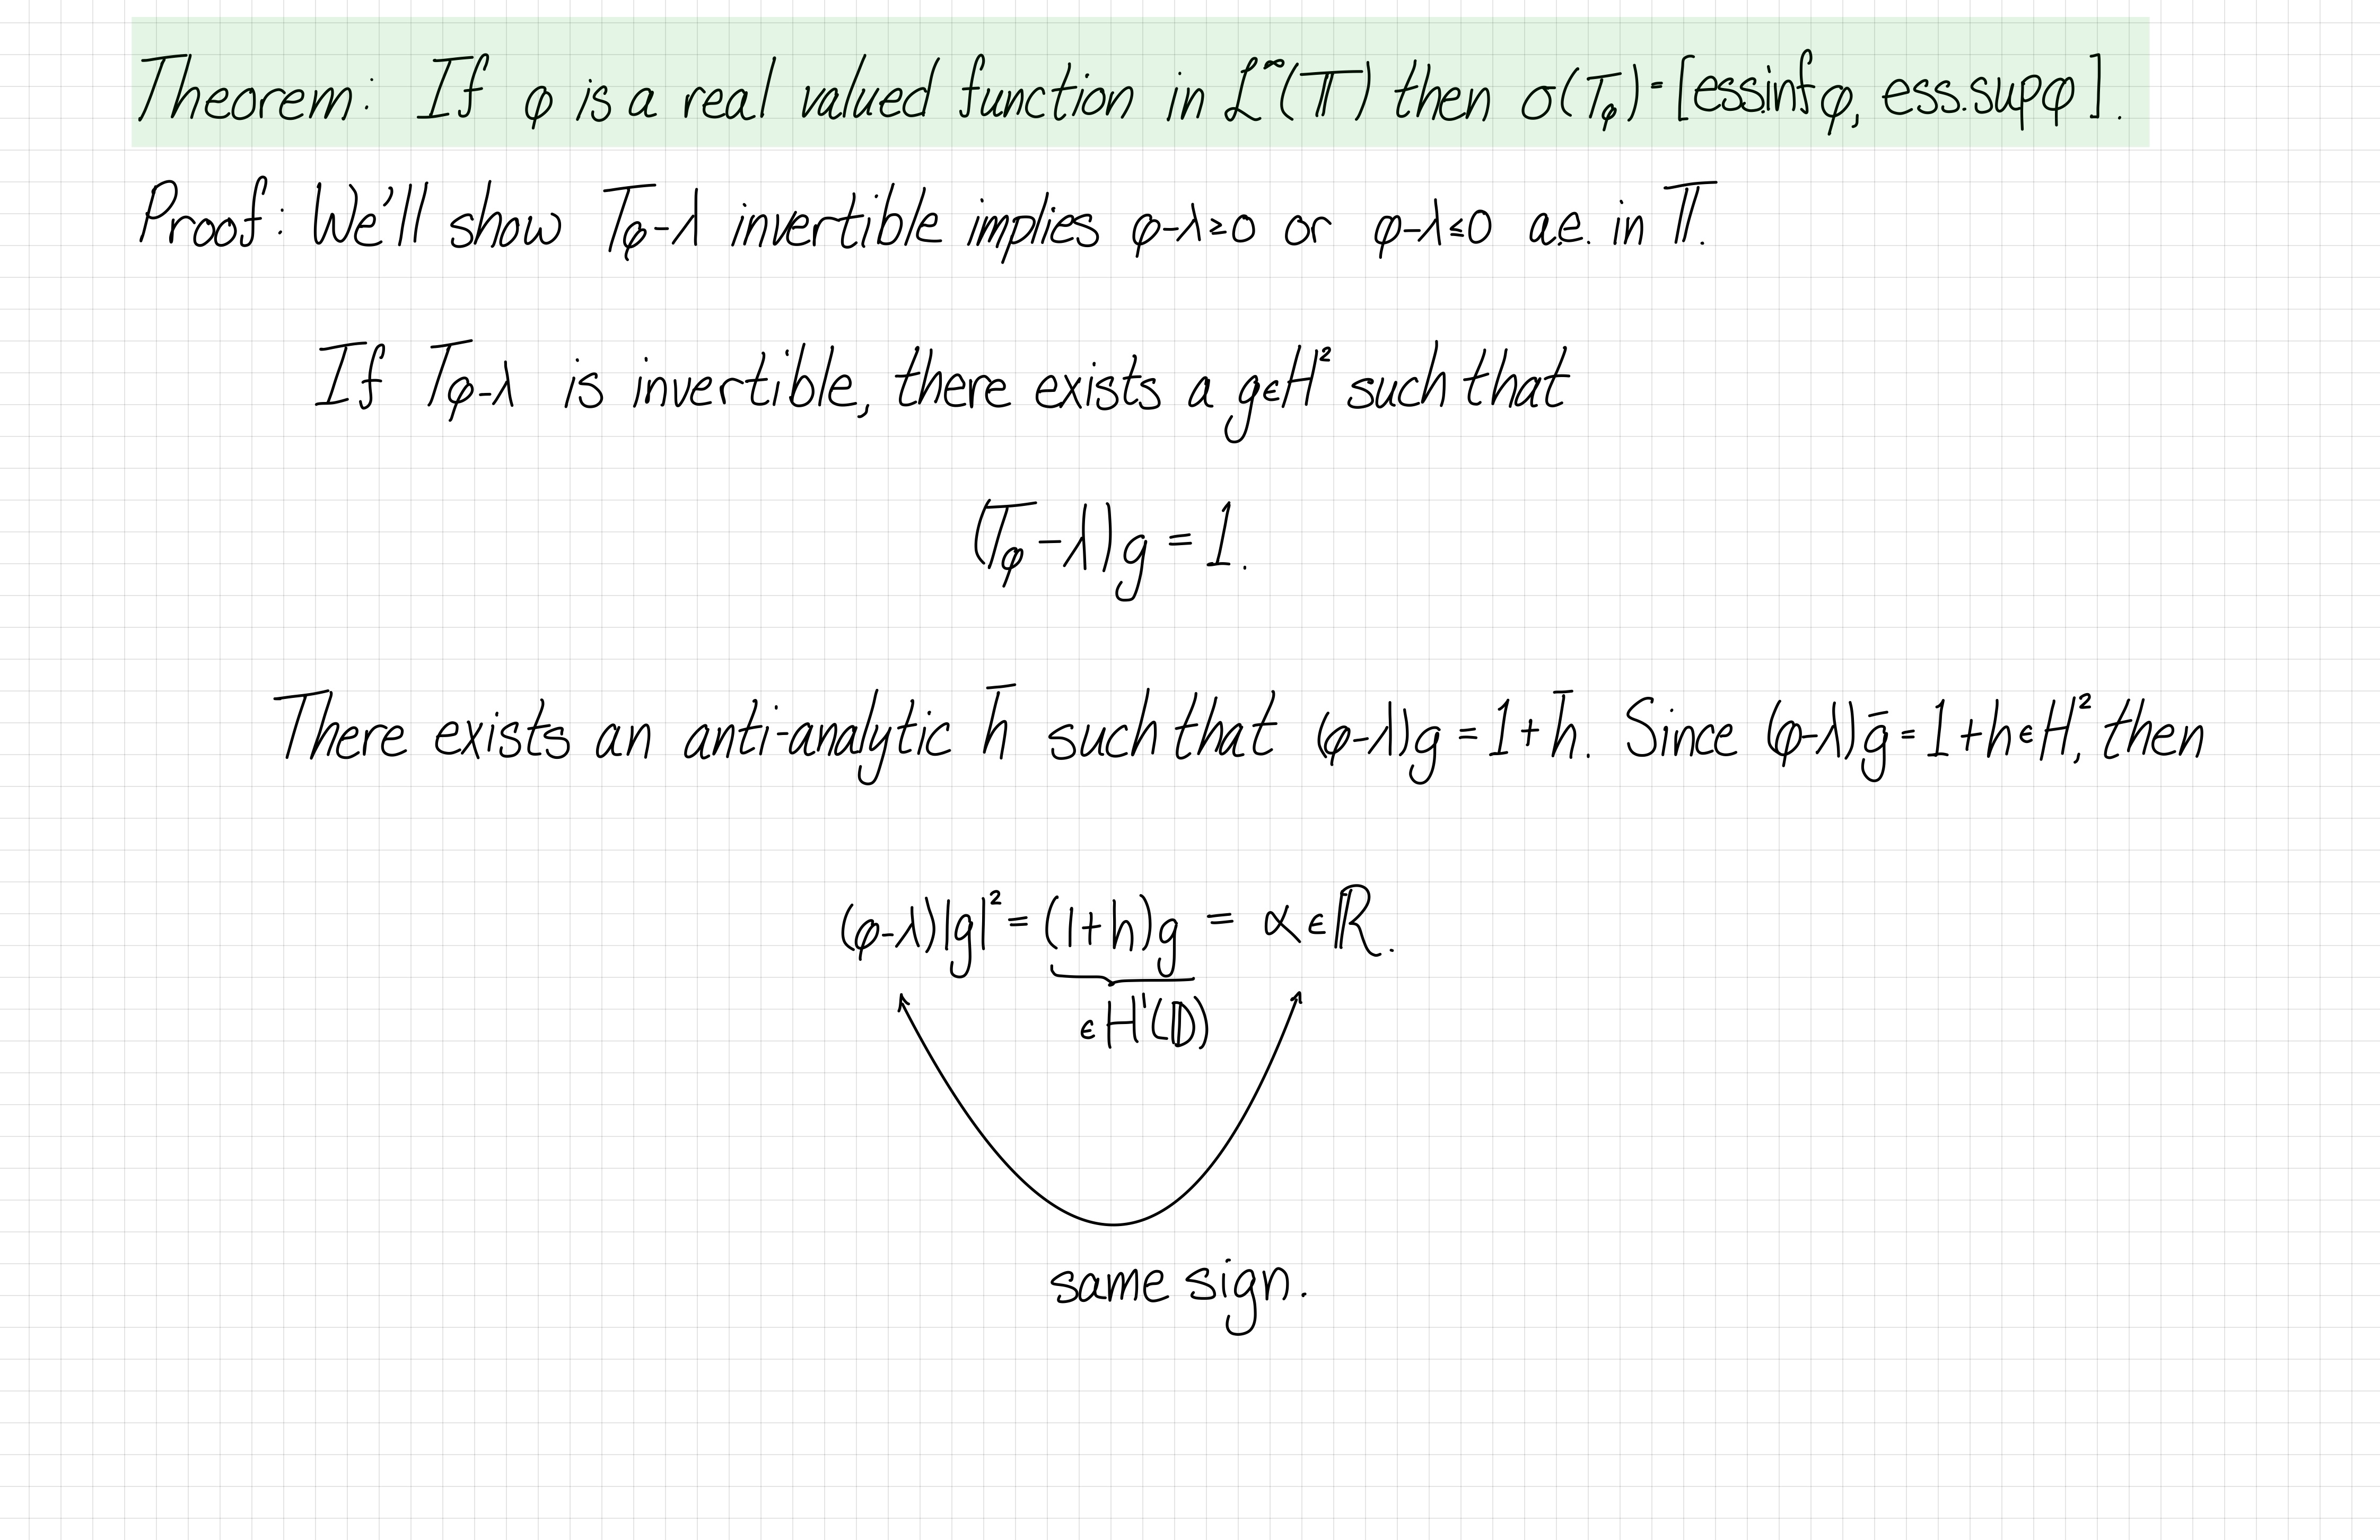 Theorem: If φ is a real valued function in L^∞(𝕋) then σ(T_φ)=[essinfφ, ess.supφ].
Proof: We'll show T_φ-λ invertible implies φ-λ≥0 or φ-λ≤0 a.e. in 𝕋.
If T_φ-λ is invertible, there exists a g∈H² such that
(T_φ-λ)g = 1.
There exists an anti-analytic h̄ such that (φ-λ)g = 1+h̄. Since (φ-λ)ḡ = 1+h∈H², then
(φ-λ)|g|² = (1+h)g = α∈ℝ.
∈H¹(𝔻)
same sign.